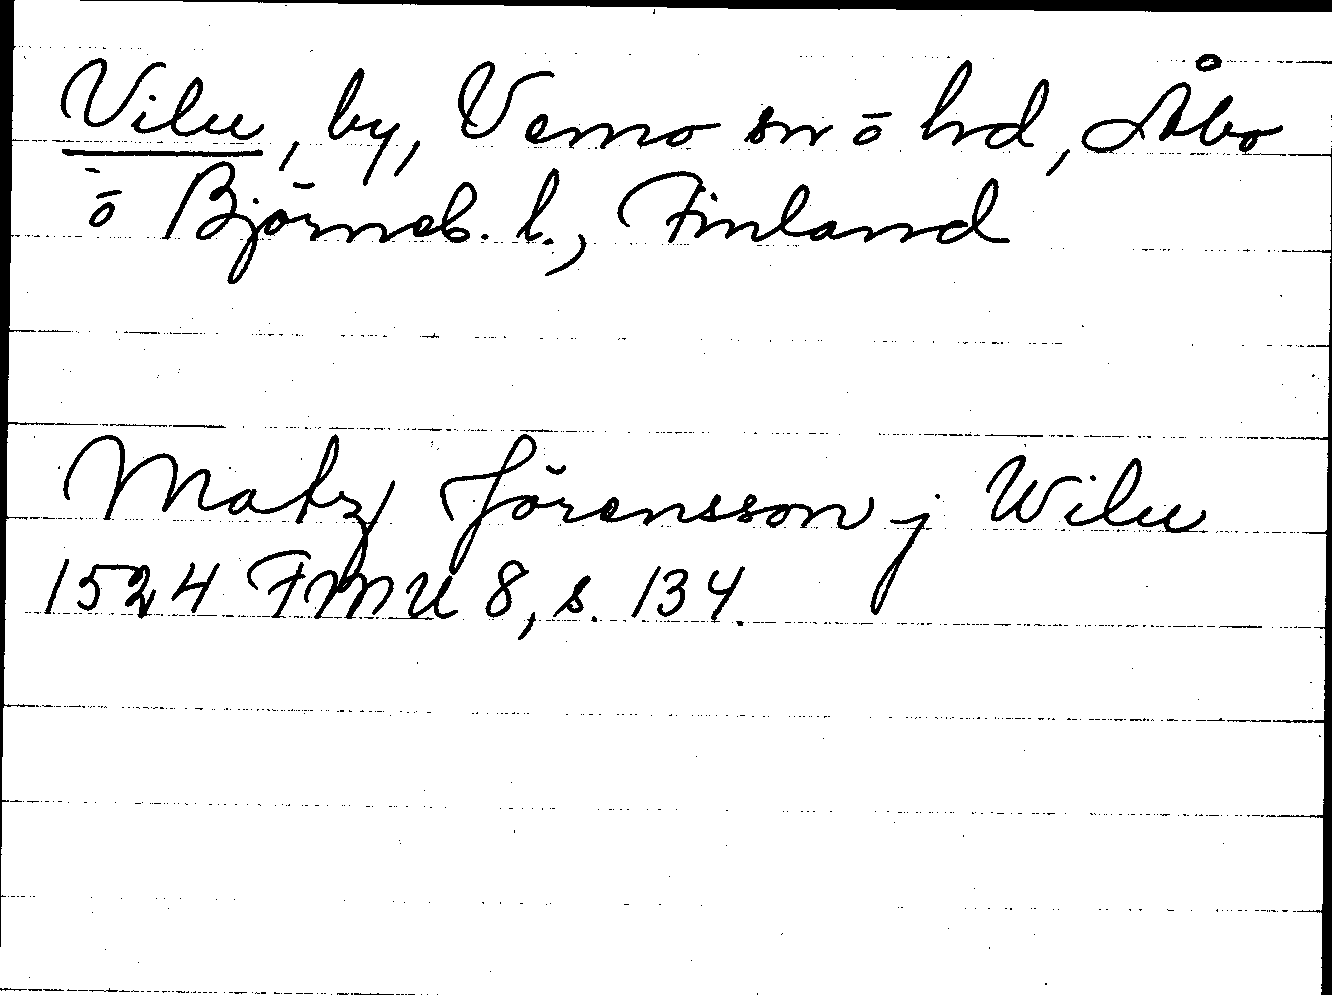 Vilu, by, Vemo sn ō hd, Åbo
ō Björneb. l., Finland
Matz Jörensson j Wilu
1524 FMU 8, s. 134.